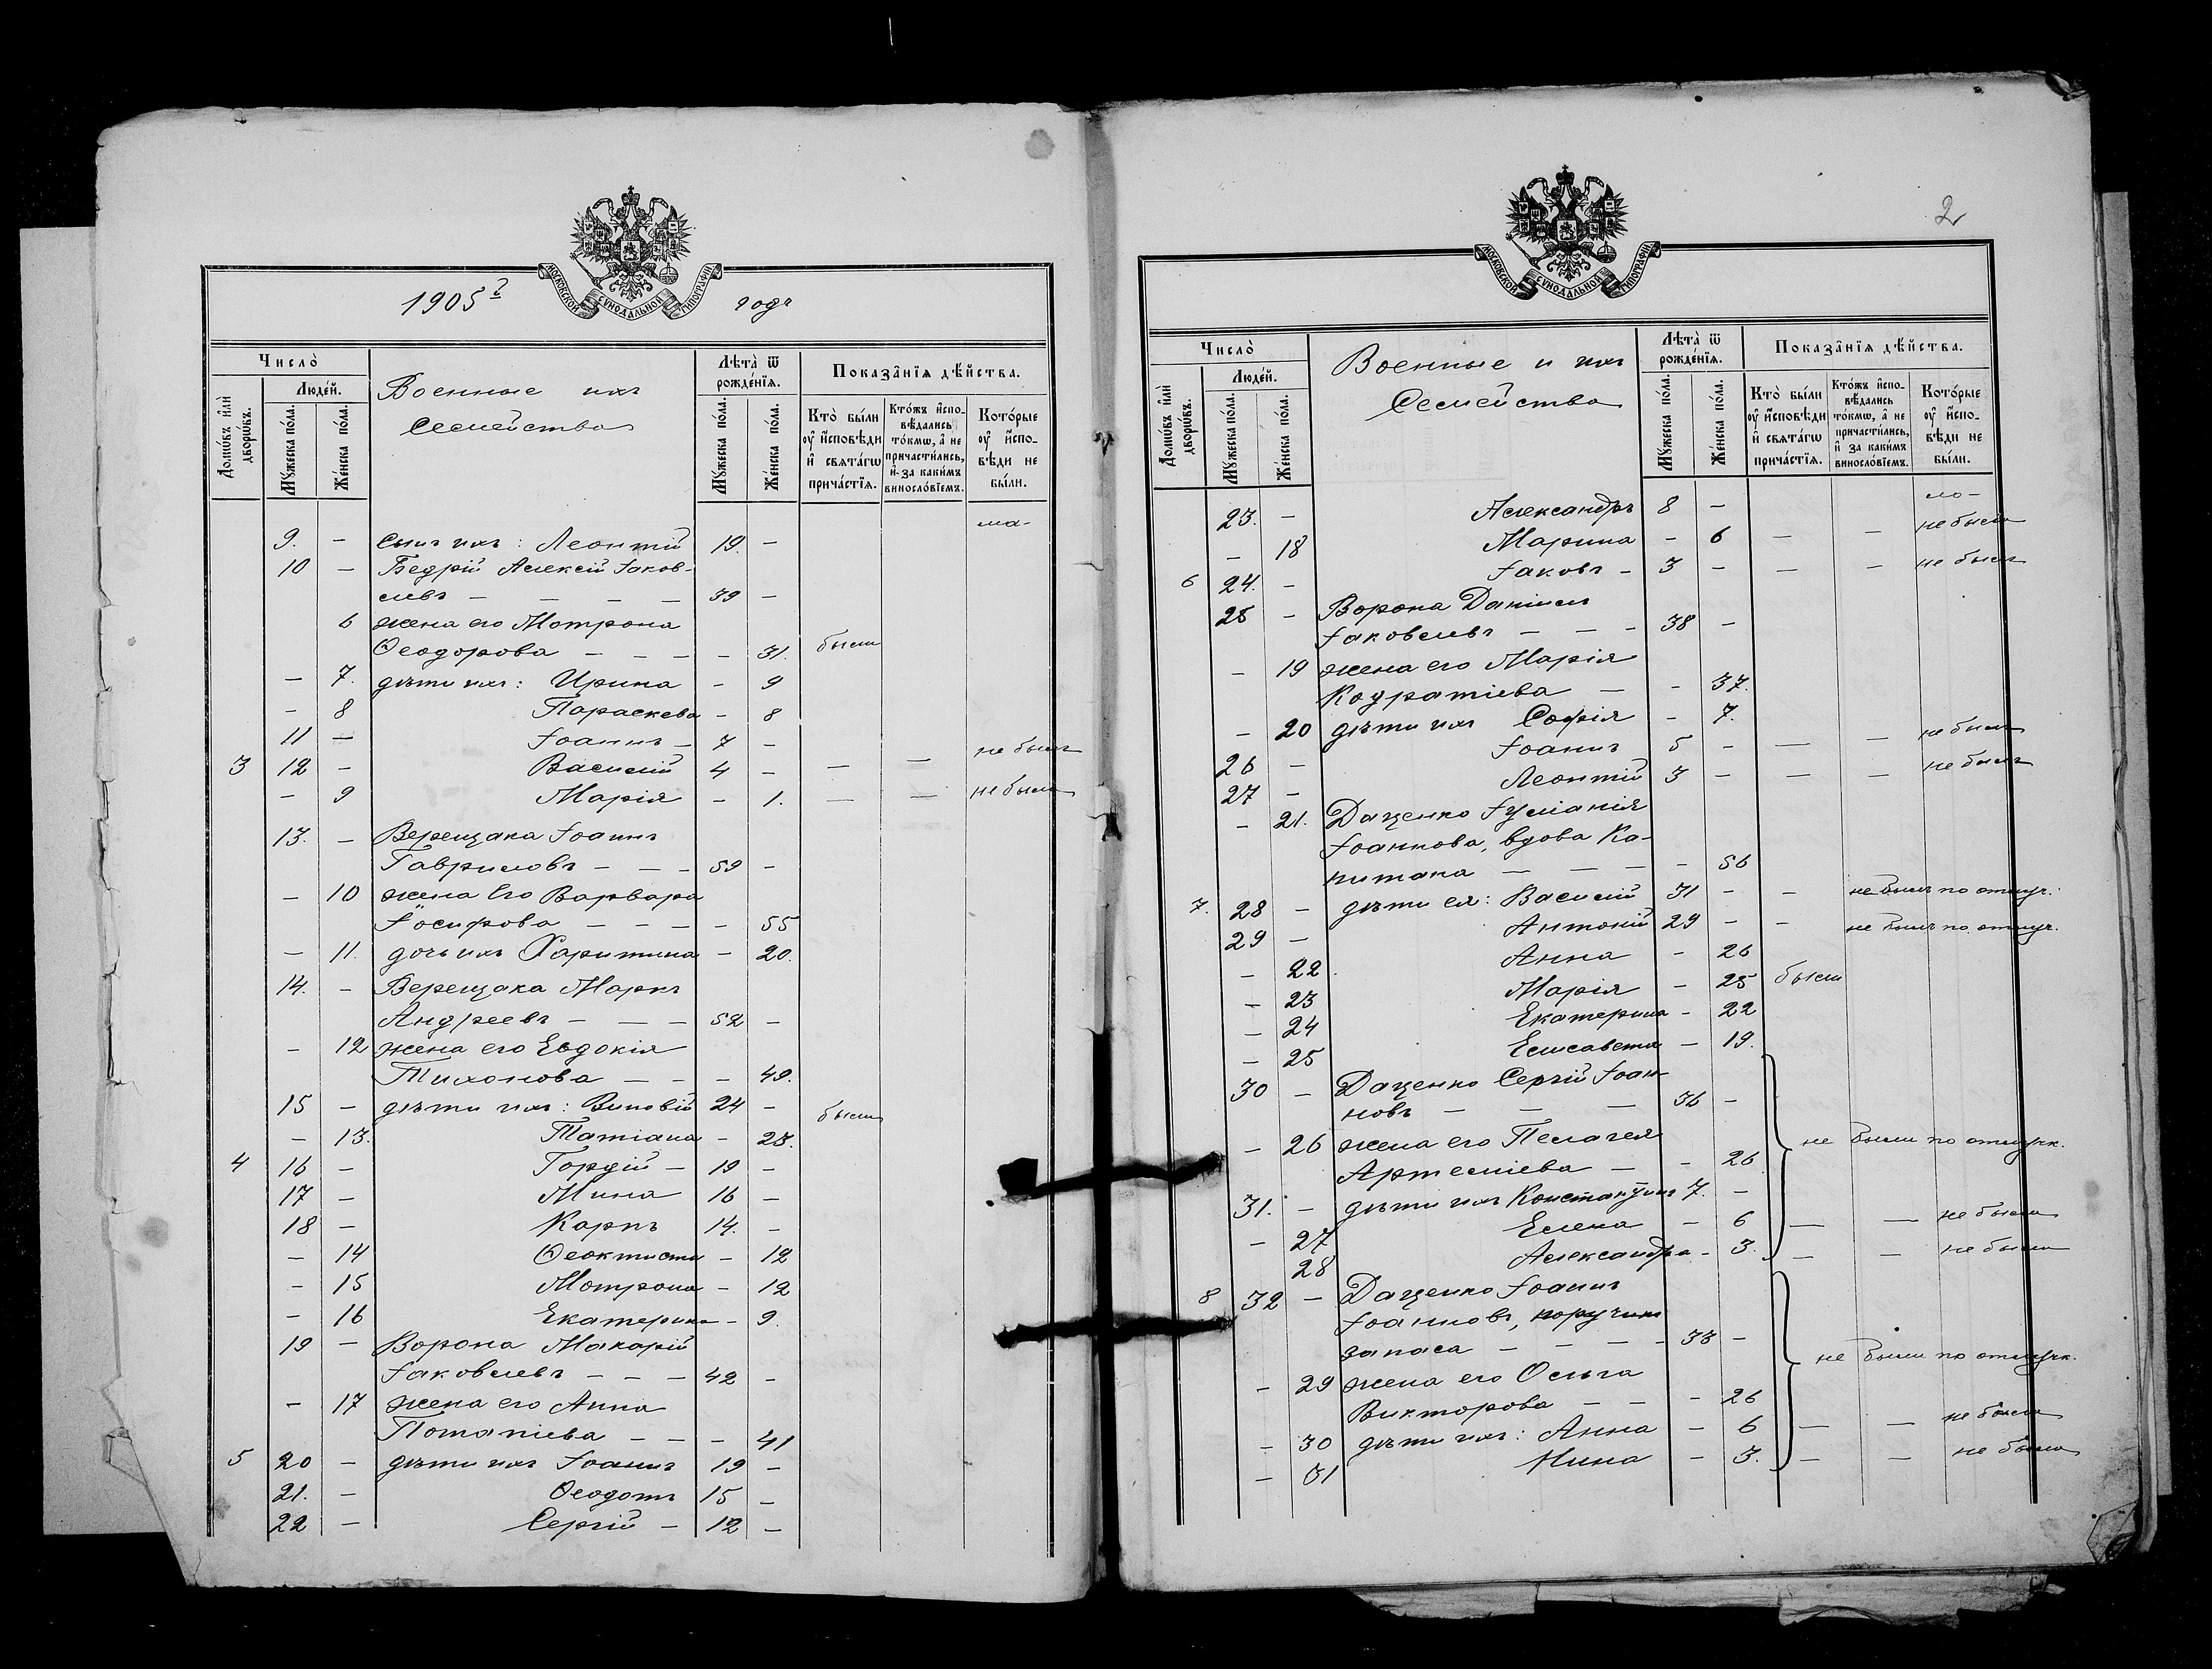 МОСКОВСКОЙ СѴНОДАЛЬНОЙ ТИПОГРАФІИ
1905 г годъ
Число̀
Люде́й.
Домѡ́въ и҆лѝ дворѡ́въ.
Мꙋ́жеска по́ла.
Же́нска по́ла.
Военные ихъ
Семейства
Лѣ́та ѿ рожде́нїѧ.
Мꙋ́жеска по́ла.
Же́нска по́ла.
Показа̑нїѧ дѣ́йства.
Кто̀ бы́ли ᲂу҆ и҆́сповѣди и҆ свѧта́гѡ прича́стїѧ.
Кто́жъ и҆спо-вѣ́дались то́кмѡ, а҆ не причасти́лись, и҆ за каки́мъ винословїемъ.
Кото́рые ᲂу҆ и҆́спо-вѣди не бы́ли.
ма-
9. - сынъ ихъ: Леонтій 19. -
10 - Бедрій Алексій Іаков-
левъ - - - - 39 -
6 жена его Мотрона
Ѳеодорова - - - - 31. были
- 7. дѣти ихъ: Ирина - 9
- 8 Параскева - 8
11 - Іоаннъ - 7 -
3 12 - Василій 4 - - - не былъ
- 9 Марія - 1. - - не была
13. - Верещака Іоаннъ
Гавриловъ - - - 59 -
- 10 жена его Варвара
Іосифова - - - - 55
- 11. дочь ихъ Харитина - 20.
14. - Верещака Маркъ
Андреевъ - - - 52 -
- 12 жена его Евдокія
Тихонова - - - 49.
15 - дѣти ихъ: Виновій 24 - были
- 13. Татіана - 23.
4 16 - Гордій - 19 -
17 - Мина 16 -
18 - Карпъ 14. -
- 14 Ѳеоктиста - 12
- 15 Мотрона - 12
- 16 Екатерина - 9.
19 - Ворона Макарій
Іаковлевъ - - - 42 -
- 17 жена его Анна
Потапіева - - - 41
5 20 - дѣти ихъ Іоаннъ 19 -
21. - Ѳеодотъ 15 -
22 - Сергій - 12 -
2
МОСКОВСКОЙ СѴНОДАЛЬНОЙ ТИПОГРАФІИ
Число̀
Люде́й.
Домѡ́въ и҆лѝ дворѡ́въ.
Мꙋ́жеска по́ла.
Же́нска по́ла.
Военные и ихъ
Семейства
Лѣ́та ѿ рожде́нїѧ.
Мꙋ́жеска по́ла.
Же́нска по́ла.
Показа̑нїѧ дѣ́йства.
Кто̀ бы́ли ᲂу҆ и҆́сповѣди и҆ свѧта́гѡ прича́стїѧ.
Кто́жъ и҆спо-вѣ́дались то́кмѡ, а҆ не причасти́лись, и҆ за каки́мъ винословїемъ.
Кото́рые ᲂу҆ и҆́спо-вѣди не бы́ли.
ло-
23. - Александръ 8 -
- 18 Марина - 6 - - не была
6 24. - Іаковъ - 3 - - - не былъ
25 - Ворона Даніилъ
Іаковлевъ - - - 38 -
- 19 жена его Марія
Кодратіева - - 37.
- 20 дѣти ихъ Софія - 7.
26 - Іоаннъ 5 - - - не былъ
27 - Леонтій 3 - - - не былъ
- 21. Даценко Іуліанія
Іоаннова, вдова Ка-
питана - - - - 56
7. 28 - дѣти ея: Василій 31 - - не былъ по отлуч.
29 - Антоній 29 - - не былъ по отлуч.
- 22 Анна - 26
- 23 Марія - 25 были
- 24 Екатерина - 22
- 25 Елисавета - 19.
30 - Даценко Сергій Іоан-
новъ - - - 36 -
- 26 жена его Пелагея
Артеміева - - 26 не были по отлучк.
31. - дѣти ихъ Константинъ 7. -
- 27 Елена - 6 - - не была
28 Александра - 3. - - не была
8 32 - Даценко Іоаннъ
Іоанновъ, поручикъ
запаса - - - - 33 -
- 29 жена его Ольга не были по отлучк.
Викторова - - - 26
- 30 дѣти ихъ: Анна - 6 - - не была
- 31 Нина - 3. - - не была